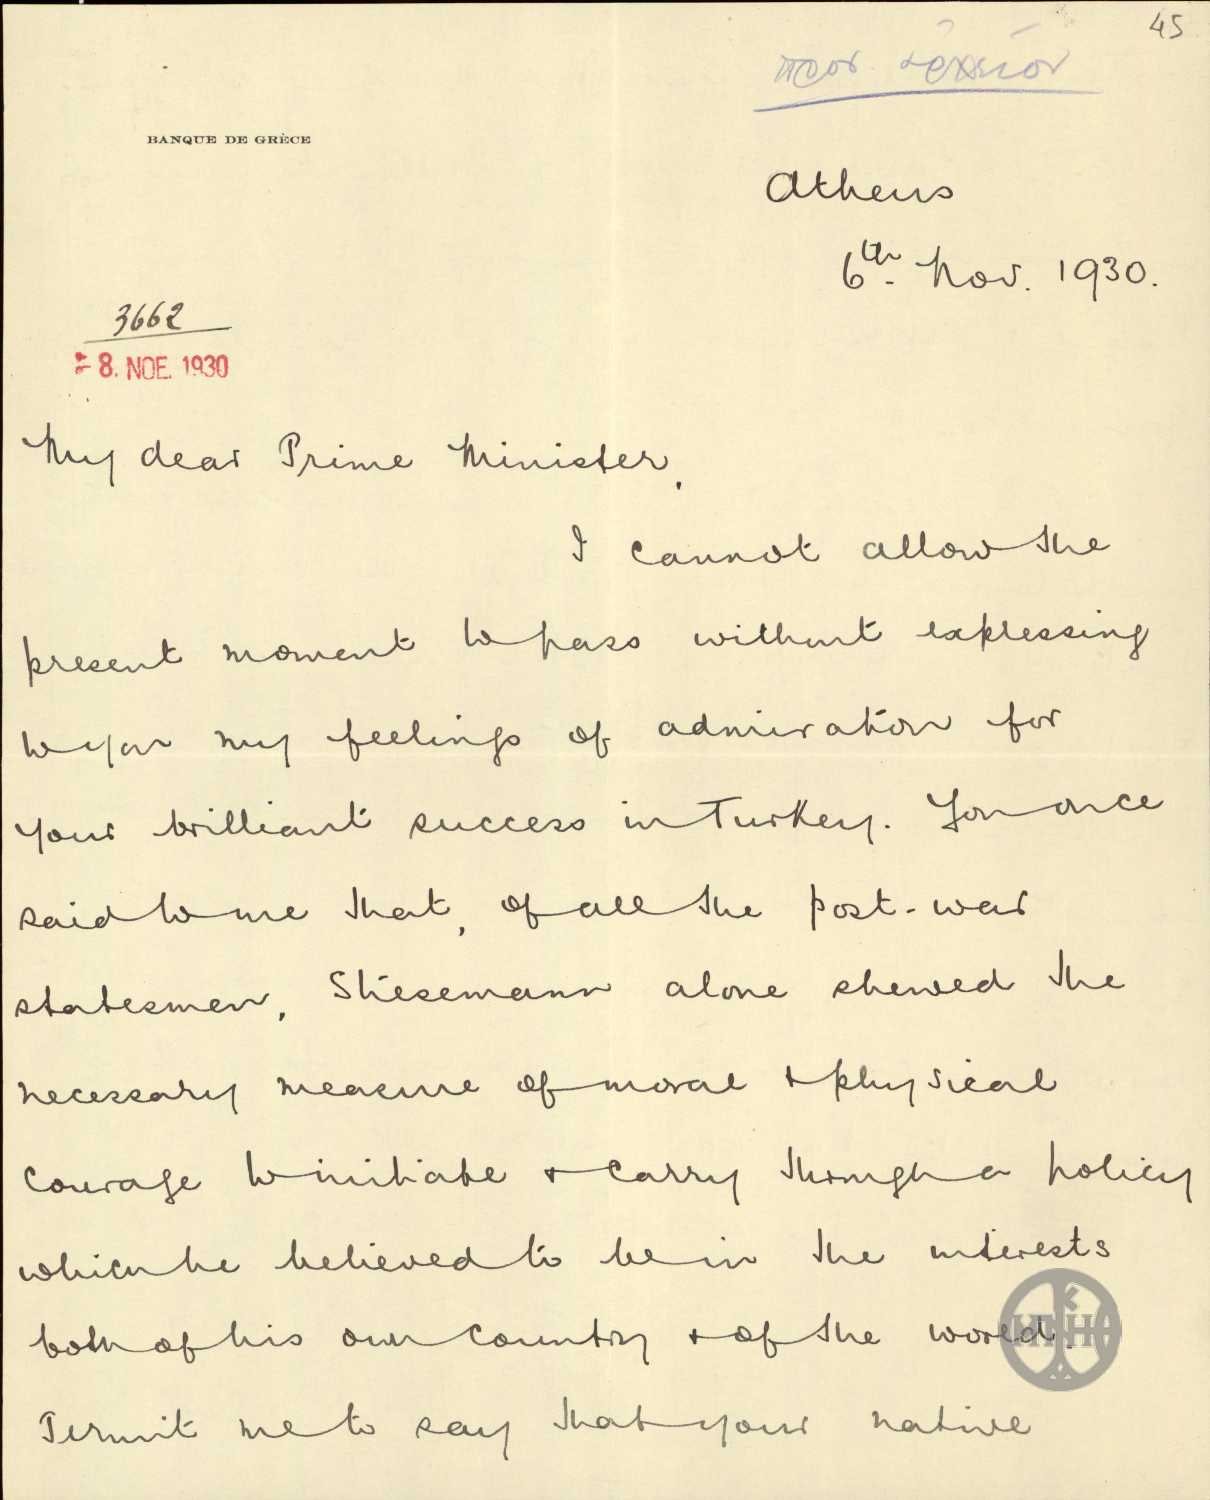 45
BANQUE DE GRÈCE
Athens
6th. Nov. 1930.
3662
8. ΝΟΕ. 1930
My dear Prime Minister,
I cannot allow the
present moment to pass without expressing
to you my feelings of admiration for
your brilliant success in Turkey. You once
said to me that, of all the post-war
statesmen, Stresemann alone shewed the
necessary measure of moral & physical
courage to initiate & carry through a policy
which he believed to be in the interests
both of his own country & of the world.
Permit me to say that your native